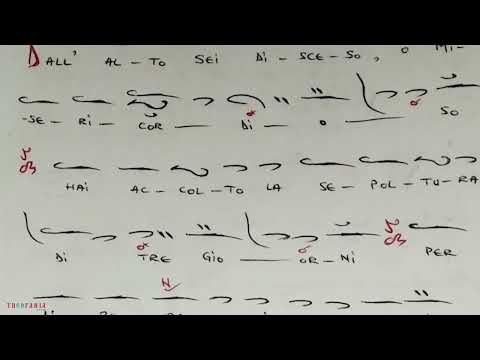 DALL' AL-TO SEI DI-SCE-SO, O MI-
-SE-RI-COR DI O SO
HAI AC-COL-TO LA SE-POL-TU-RA
DI TRE GIO OR-NI PER
N
THEOTARIA